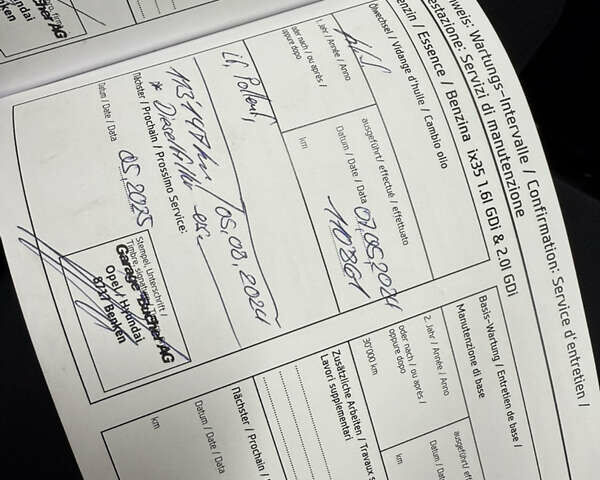 hweis: Wartungs-Intervalle / Confirmation: Service d'entretien /
estazione: Servizi di manutenzione
enzin / Essence / Benzina ix35 1.6l GDi & 2.0l GDi
Ölwechsel / Vidange d'huile / Cambio olio
1. Jahr / Année / Anno
oder nach / ou après /
oppure dopo
ausgeführt / effectué / effettuato
Datum / Date / Data 07.05.2024
km 110'861
LF, Pollenf,
113147km / 05.08.2024
* Dieselfilter ers.
Nächster / Prochain / Prossimo Service:
Datum / Date / Data 05.2025
Stempel, Unterschrift /
Timbre, signature
Garage Bucher AG
Opel / Hyundai
8717 Benken
Basis-Wartung / Entretien de base /
Manutenzione di base
2. Jahr / Année / Anno
oder nach / ou après /
oppure dopo
30'000 km
ausgeführt / effect
Datum / D
km
Zusätzliche Arbeiten / Travaux s
Lavori supplementari
Nächster / Prochain /
Datum / Date / Data
yundai
Benken